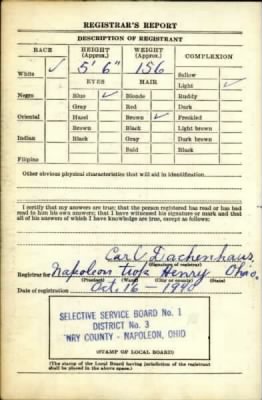 REGISTRAR'S REPORT
DESCRIPTION OF REGISTRANT
RACE HEIGHT (Approx.) WEIGHT (Approx.) COMPLEXION
White ✓ 5' 6" 156 Sallow
EYES HAIR Light ✓
Negro Blue ✓ Blonde Ruddy
Gray Red Dark
Oriental Hazel Brown ✓ Freckled
Brown Black Light brown
Indian Black Gray Dark brown
Bald Black
Filipino
Other obvious physical characteristics that will aid in identification
I certify that my answers are true; that the person registered has read or has had
read to him his own answers; that I have witnessed his signature or mark and that
all of his answers of which I have knowledge are true, except as follows:
Carl Dachenhaus
(Signature of registrar)
Registrar for Napoleon Henry Ohio.
(Precinct) (Ward) (City or county) (State)
Date of registration Oct. 16 - 1940
SELECTIVE SERVICE BOARD No. 1
DISTRICT No. 3
NRY COUNTY - NAPOLEON, OHIO
(STAMP OF LOCAL BOARD)
(The stamp of the Local Board having jurisdiction of the registrant
shall be placed in the above space.)